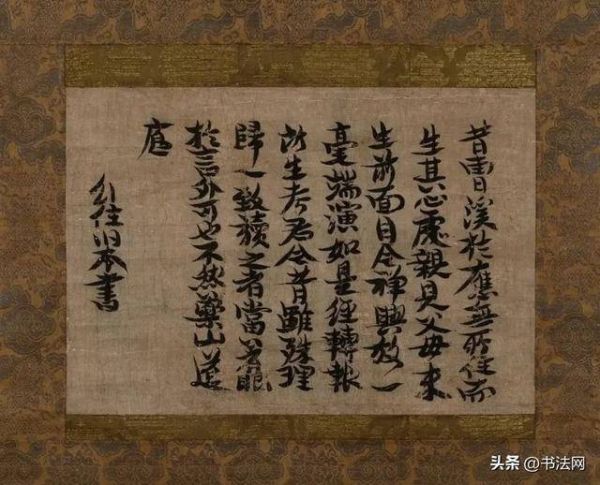 昔曹溪於應無所住而
生其心處親見父母未
生前面目今禅興一
毫端演如是經轉報
所生考君今昔雖殊理
歸一致讀之者當着眼
於言外可也不然藥山遮
住旧本書
头条 @书法网